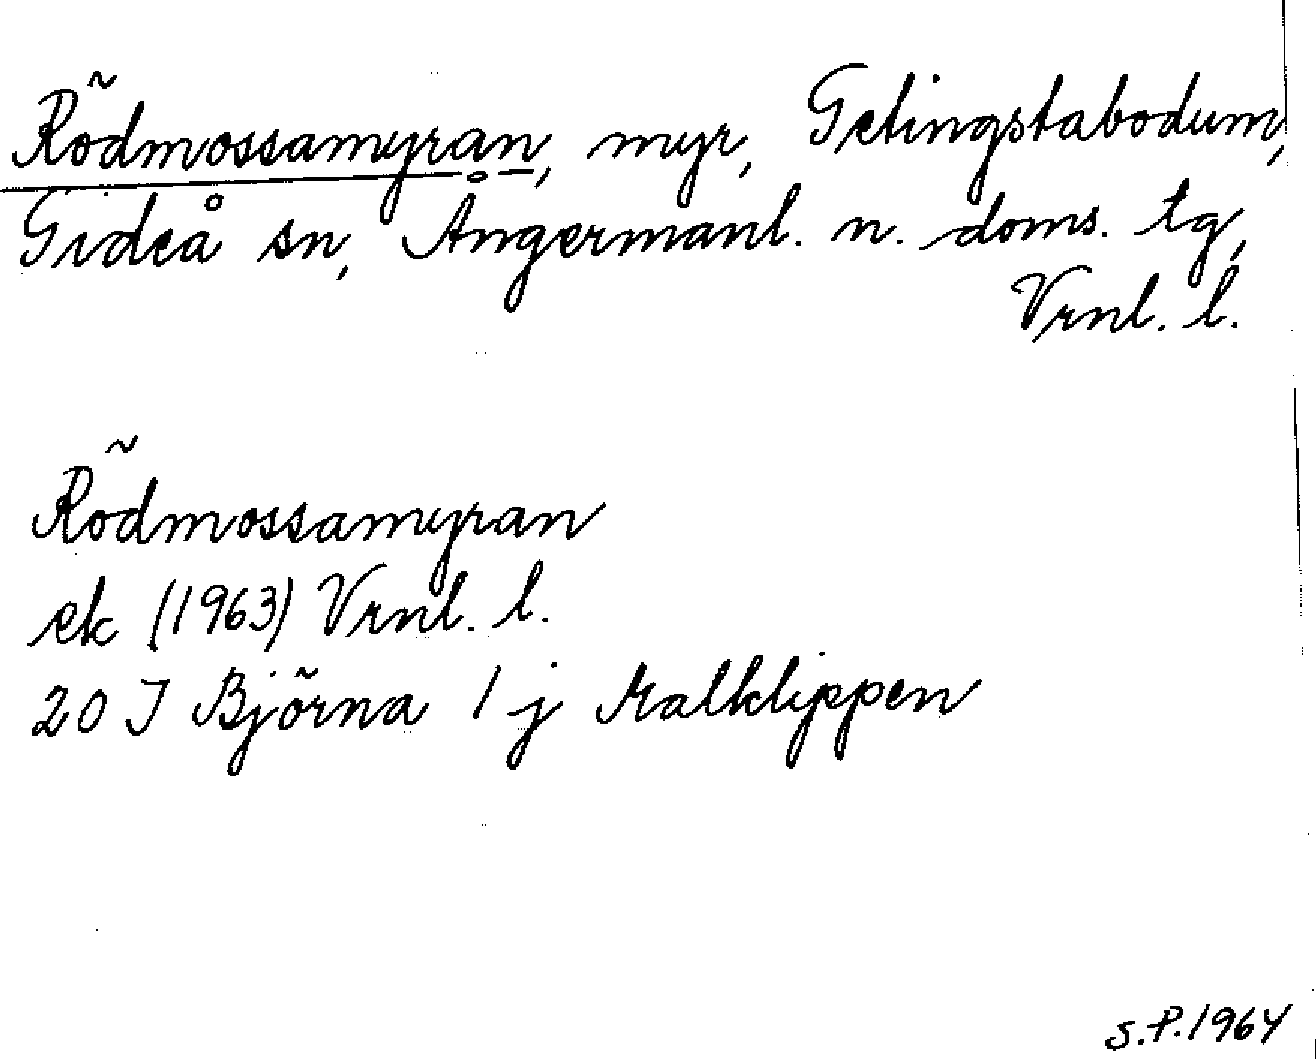 Rödmossamyran, myr, Getingstabodum,
Gideå sn, Ångermanl. n. doms. tg,
Vrnl. l.
Rödmossamyran
ek (1963) Vrnl. l.
20 I Björna 1 j Kalklippen
S.P. 1964